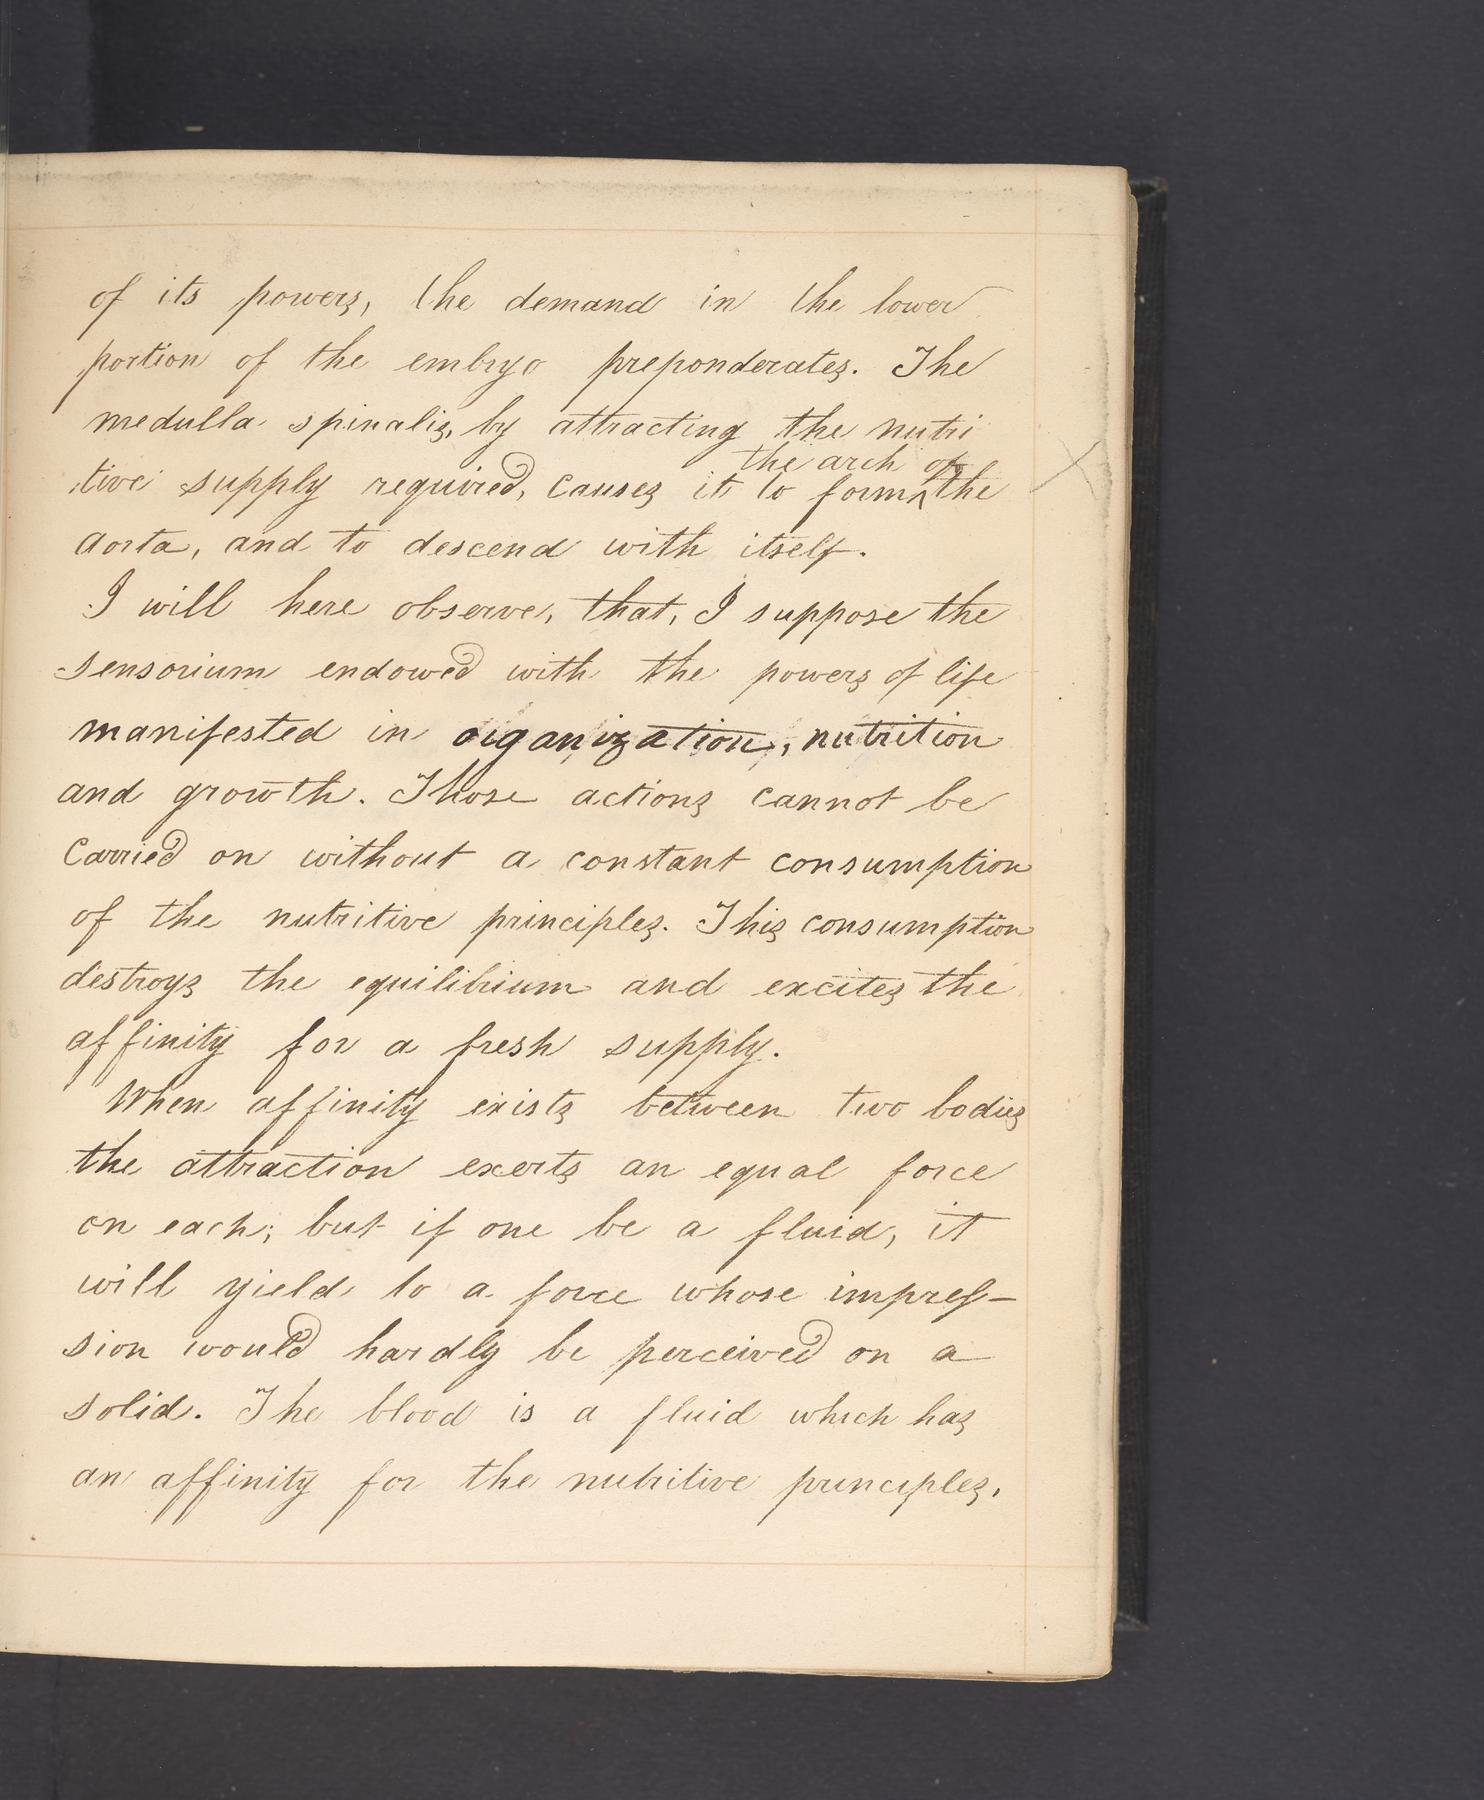 of its powers, the demand in the lower
portion of the embryo preponderates. The
medulla spinalis, by attracting the nutri
the arch of
tive supply required, causes it to form ^ the
aorta, and to descend with itself.
I will here observe, that, I suppose the
sensorium endowed with the powers of life
manifested in organization, nutrition
and growth. Those actions cannot be
carried on without a constant consumption
of the nutritive principles. This consumption
destroys the equilibrium and excites the
affinity for a fresh supply.
When affinity exists between two bodies
the attraction exerts an equal force
on each; but if one be a fluid, it
will yield to a force whose impres-
sion would hardly be perceived on a
solid. The blood is a fluid which has
an affinity for the nutritive principles,